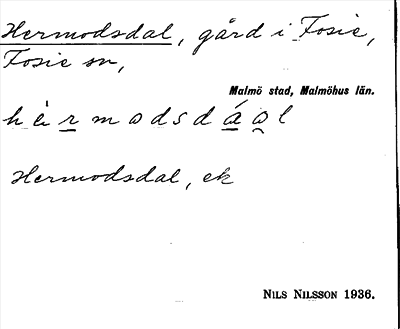 Hermodsdal, gård i Fosie,
Fosie sn,
Malmö stad, Malmöhus län.
hèrmodsdáol
Hermodsdal, ek
NILS NILSSON 1936.